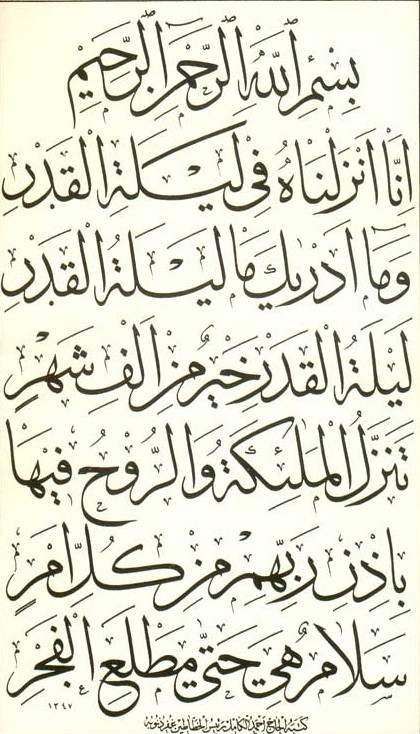 بِسْمِ اللّٰهِ الرَّحْمٰنِ الرَّحِيْمِ
اِنَّا اَنْزَلْنَاهُ فِى لَيْلَةِ الْقَدْرِ
وَمَا اَدْرٰيكَ مَا لَيْلَةُ الْقَدْرِ
لَيْلَةُ الْقَدْرِ خَيْرٌ مِنْ اَلْفِ شَهْرٍ
تَنَزَّلُ الْمَلٰئِكَةُ وَالرُّوحُ فِيهَا
بِاِذْنِ رَبِّهِمْ مِنْ كُلِّ اَمْرٍ
سَلَامٌ هِىَ حَتّٰى مَطْلَعِ الْفَجْرِ
١٣٤٧
كتبه الحاج احمد الكامل رئيس الخطاطين غفر ذنوبه